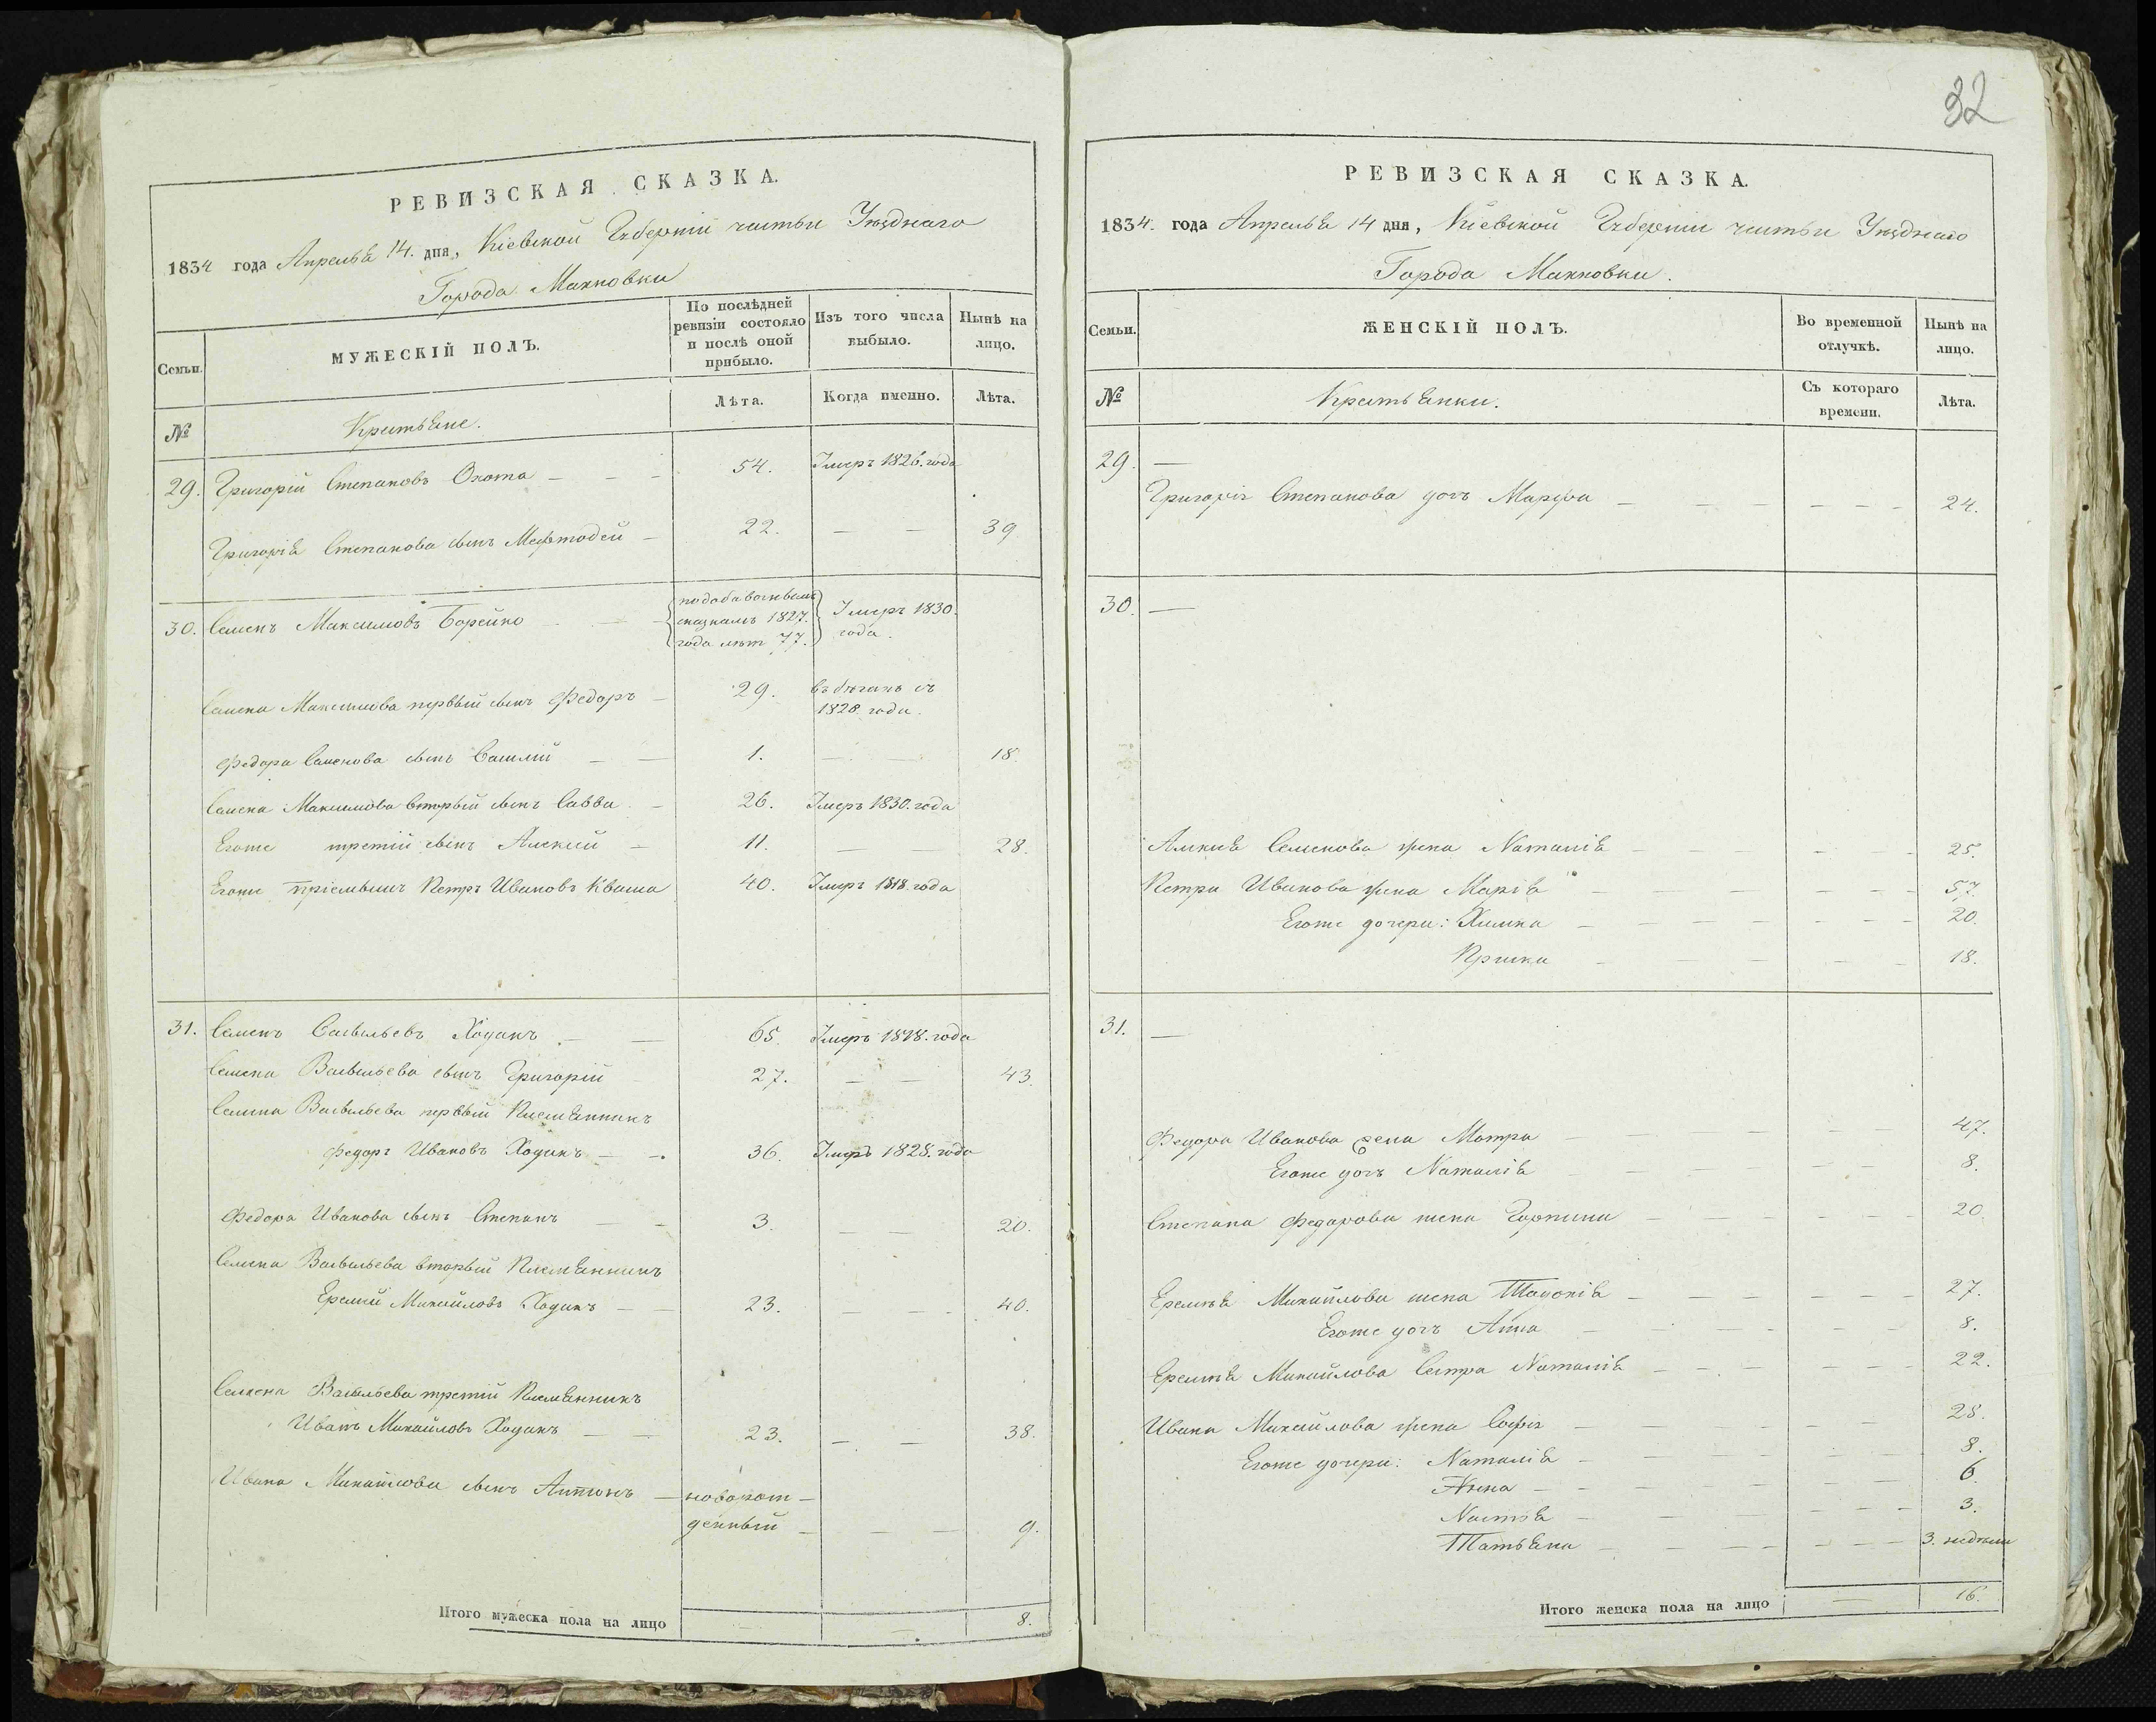 РЕВИЗСКАЯ СКАЗКА.
1834 года Апреля 14. дня, Кіевской Губерніи части Уѣзднаго
Города Махновки
Семьи.
МУЖЕСКІЙ ПОЛЪ.
По послѣдней ревизіи состояло и послѣ оной прибыло.
Изъ того числа выбыло.
Нынѣ на лицо.
№
Крестьяне.
Лѣта.
Когда именно.
Лѣта.
29. Григорій Степановъ Охота — — — 54. Умеръ 1826. года
Григорія Степанова сынъ Мефтодей — 22. — — 39
30. Семенъ Максимовъ Борейко — — по добавочнымъ сказкамъ 1827. года лѣт 77. Умеръ 1830. года.
Семена Максимова первый сынъ Федоръ — 29. въ бѣгахъ съ 1828. года.
Федора Семенова сынъ Василій — — 1. — — 18.
Семена Максимова вторый сынъ Савва — 26. Умеръ 1830. года
Егоже третій сынъ Алексій — 11. — — 28.
Егоже пріемышъ Петръ Ивановъ Кваша 40. Умеръ 1818. года
31. Семенъ Васильевъ Ходакъ — — 65. Умеръ 1818. года
Семена Васильева сынъ Григорій — 27. — — 43.
Семена Васильева первый Племянникъ
Федоръ Ивановъ Ходакъ — — 36. Умеръ 1828. года
Федора Иванова сынъ Степанъ — — 3. — — 20.
Семена Васильева вторый Племянникъ
Еремій Михайловъ Ходакъ — — 23. — — 40.
Семена Васильева третій Племянникъ
Иванъ Михайловъ Ходакъ — — 23. — — 38.
Ивана Михайлова сынъ Антонъ — новорож-
денный — — — 9.
Итого мужеска пола на лицо — — 8.
32
РЕВИЗСКАЯ СКАЗКА.
1834. года Апреля 14 дня, Кіевской Губерніи части Уѣзднаго
Города Махновки.
Семьи.
ЖЕНСКІЙ ПОЛЪ.
Во временной отлучкѣ.
Нынѣ на лицо.
№
Крестьянки.
Съ котораго времени.
Лѣта.
29. —
Григорія Степанова дочь Марфа — — — — — — 24.
30. —
Алексія Семенова жена Наталія — — — — — 25.
Петра Иванова жена Марія — — — — — 57.
Егоже дочери: Химка — — — — — — 20.
Приська — — — — — 18.
31. —
Федора Иванова жена Мотря — — — — — 47.
Егоже дочь Наталія — — — — — 8.
Степана Федорова жена Горпина — — — — — 20.
Еремѣя Михайлова жена Тодонія — — — — — — 27.
Егоже дочь Анна — — — — — 8.
Еремѣя Михайлова Сестра Наталія — — — — — — 22.
Ивана Михайлова жена Софія — — — — — 28.
Егоже дочери: Наталія — — — — — 8.
Анна — — — — — 6.
Настя — — — — — 3.
Татьяна — — — — — — 3. недели
Итого женска пола на лицо — 16.